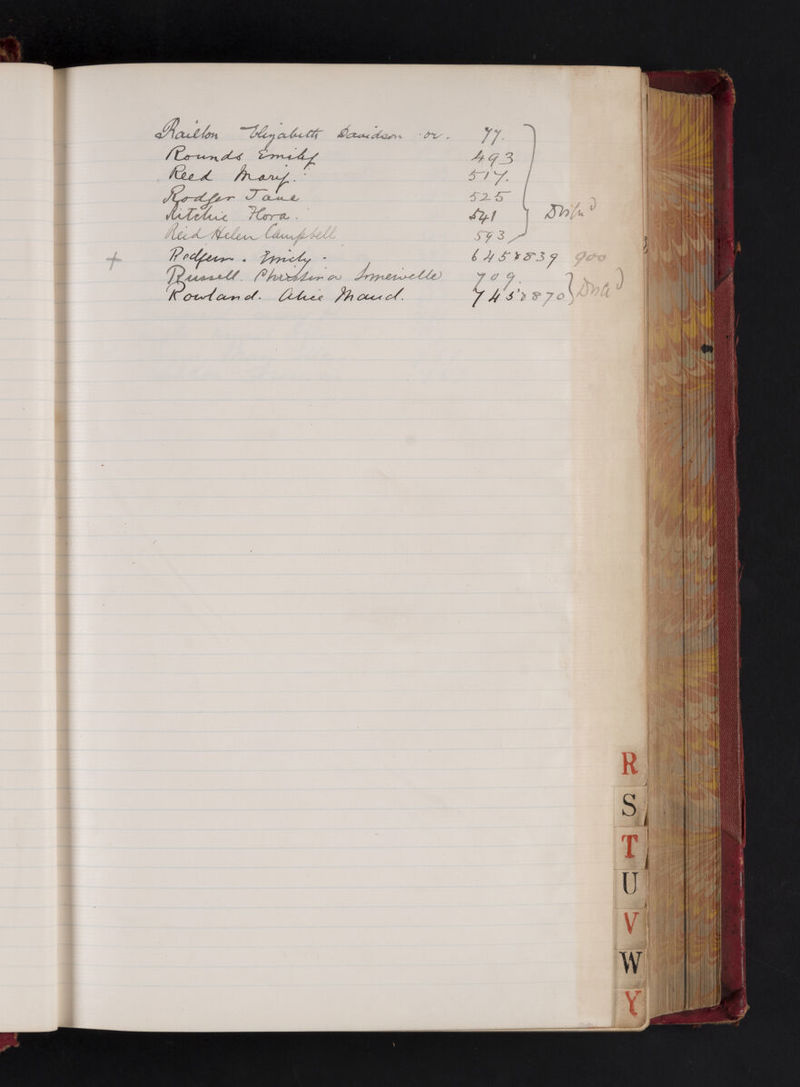 Railton Elizabeth Davidson or. 77.
Rounds Emily 493
Reed Mary. 517.
Rodger Jane 525
Ritchie Flora. 541
Reid Helen Campbell 593
+ Redfern. Emily. 645 & 839 900
Russell. Christina Somerville 709.
Rowland. Alice Maud. 745 & 870
R
S
T
U
V
W
Y